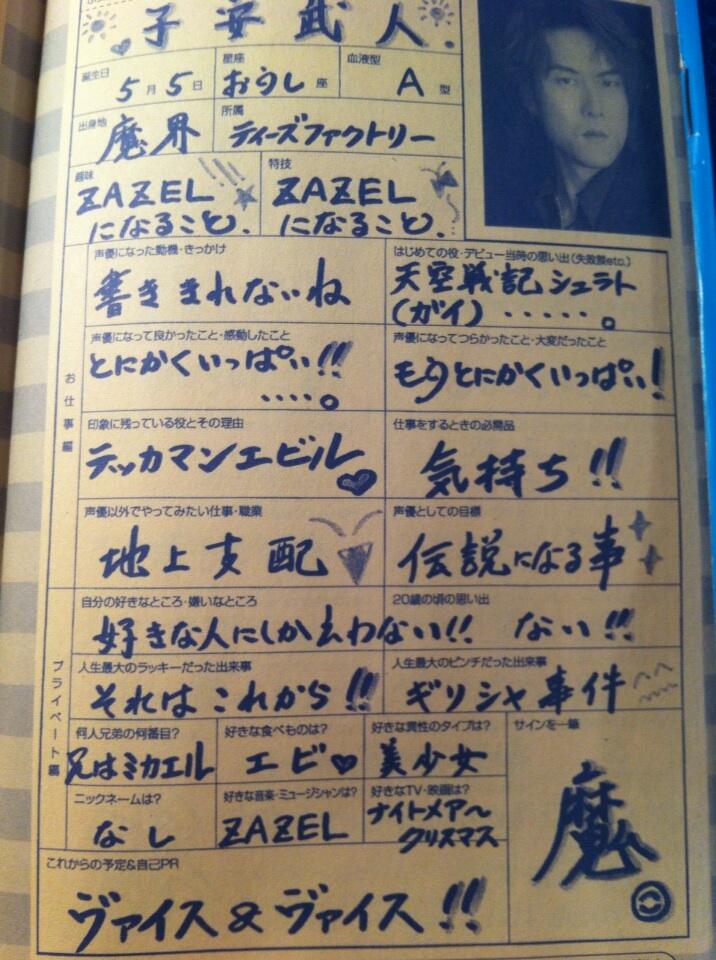 子安武人
誕生日
5月5日
星座
おうし座
血液型
A型
出身地
魔界
所属
ティーズファクトリー
趣味
ZAZEL
になること。
特技
ZAZEL
になること。
お仕事編
声優になった動機・きっかけ
書ききれないね
はじめての役・デビュー当時の思い出(失敗談etc.)
天空戦記シュラト
(ガイ)・・・・・。
声優になって良かったこと・感動したこと
とにかくいっぱい!!
・・・・。
声優になってつらかったこと・大変だったこと
もうとにかくいっぱい!
印象に残っている役とその理由
テッカマンエビル♥
仕事をするときの必需品
気持ち!!
声優以外でやってみたい仕事・職業
地上支配
声優としての目標
伝説になる事
プライベート編
自分の好きなところ・嫌いなところ
好きな人にしか云わない!!
20歳の頃の思い出
ない!!
人生最大のラッキーだった出来事
それはこれから!!
人生最大のピンチだった出来事
ギリシャ事件
何人兄弟の何番目?
兄はミカエル
好きな食べものは?
エビ♥
好きな異性のタイプは?
美少女
サインを一筆
魔
ニックネームは?
なし
好きな音楽・ミュージシャンは?
ZAZEL
好きなTV・映画は?
ナイトメアー
クリスマス
これからの予定&自己PR
ヴァイス&ヴァイス!!